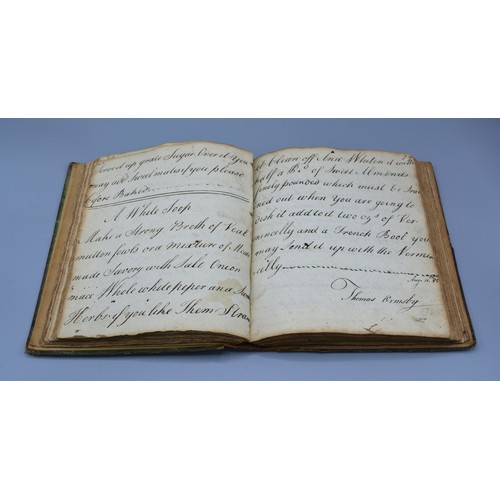 Served up grate Sugar Over it You
may add Sweetmeats if you please
before Baked
A White Soop
Make a Strong Broth of Veal
mutton fowls or a mixture of Meats
made Savory with Salt Onion
mace Whole white peper and Some
Herbs if you like Them Strain
it blown off And Whiten it with
half a lb. of Sweet Almonds
finely pounded which must be
out when You are going to
dish it add to it two ozs of Ver
mincelly and a French Bool you
may Send it up with the Vermin
celly
Thomas Ormsby